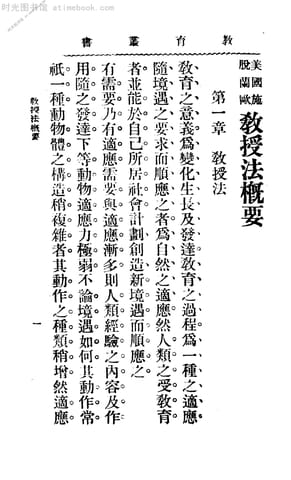 时光图书馆
教育叢書
美國施
脫蘭歐
教授法概要
第一章　教授法
教育之意義爲變化生長及發達教育之過程爲一種之適應。
隨境遇之要求而順應之者爲自然之適應然人類之受教育
者並能於自己所居社會計劃創造新境遇而順應之。
有需要乃有適應需要與適應漸多則人類經驗之內容及作
用隨之發達下等動物適應力極弱不論境遇如何其動作常
祇一種動物體之構造稍複雜者其動作之種類稍增然適應
教授法概要
一